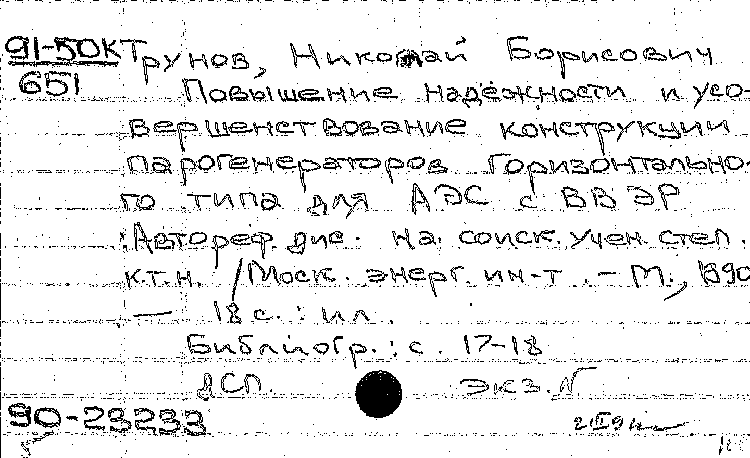 91-50к Трунов, Николай Борисович
651
Повышение надёжности и усо-
вершенствование конструкции
парогенераторов горизонтально-
го типа для АЭС с ВВЭР
: Автореф. дис. на. соиск. учен. степ.
к.т.н. / Моск. энерг. ин-т. - М.,
— 18 с. : ил.
Библиогр.: с. 17-18
ДСП. экз. N
90-23233